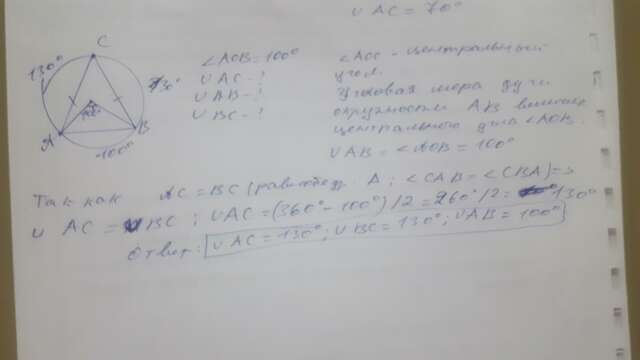 ∪ AC = 70°
C
130°
130°
100°
A
B
100°
∠AOB = 100°
∪ AC - ?
∪ AB - ?
∪ BC - ?
∠AOC - центральный
угол.
Угловая мера дуги
окружности AB
центрального угла ∠AOB.
∪ AB = ∠AOB = 100°
Так как AC = BC (равнобед. Δ; ∠CAB = ∠CBA) =>
∪ AC = ∪ BC ; ∪ AC = (360° - 100°) / 2 = 260° / 2 = 130°
Ответ: ∪ AC = 130° ; ∪ BC = 130° ; ∪ AB = 100°